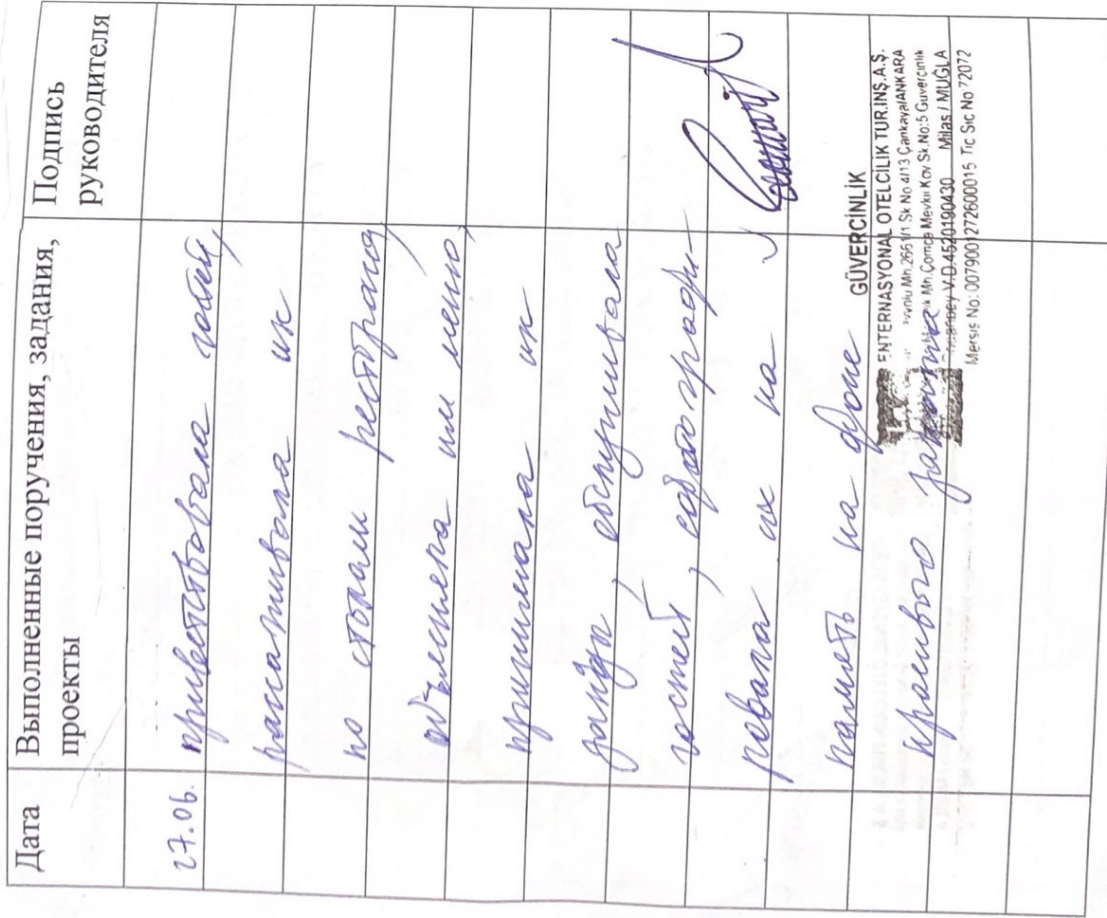 Дата
Выполненные поручения, задания, проекты
Подпись руководителя
27.06.
приветствовала гостей,
рассаживала их
по столам ресторана,
объясняла им меню,
принимала их
заказы, обслуживала
гостей, сфотографи-
ровала их на
память на фоне
красивого заката
GÜVERCİNLİK
ENTERNASYONAL OTELCİLİK TUR.İNŞ.A.Ş.
Mh.2661/1 Sk No 4/13 Çankaya/ANKARA
Mh.Çomça Mevkii Köy Sk.No:5 Güvercinlik
V.D.4520190430 Milas / MUĞLA
Mersis No: 0079001272600015 Tic Sic No 72072